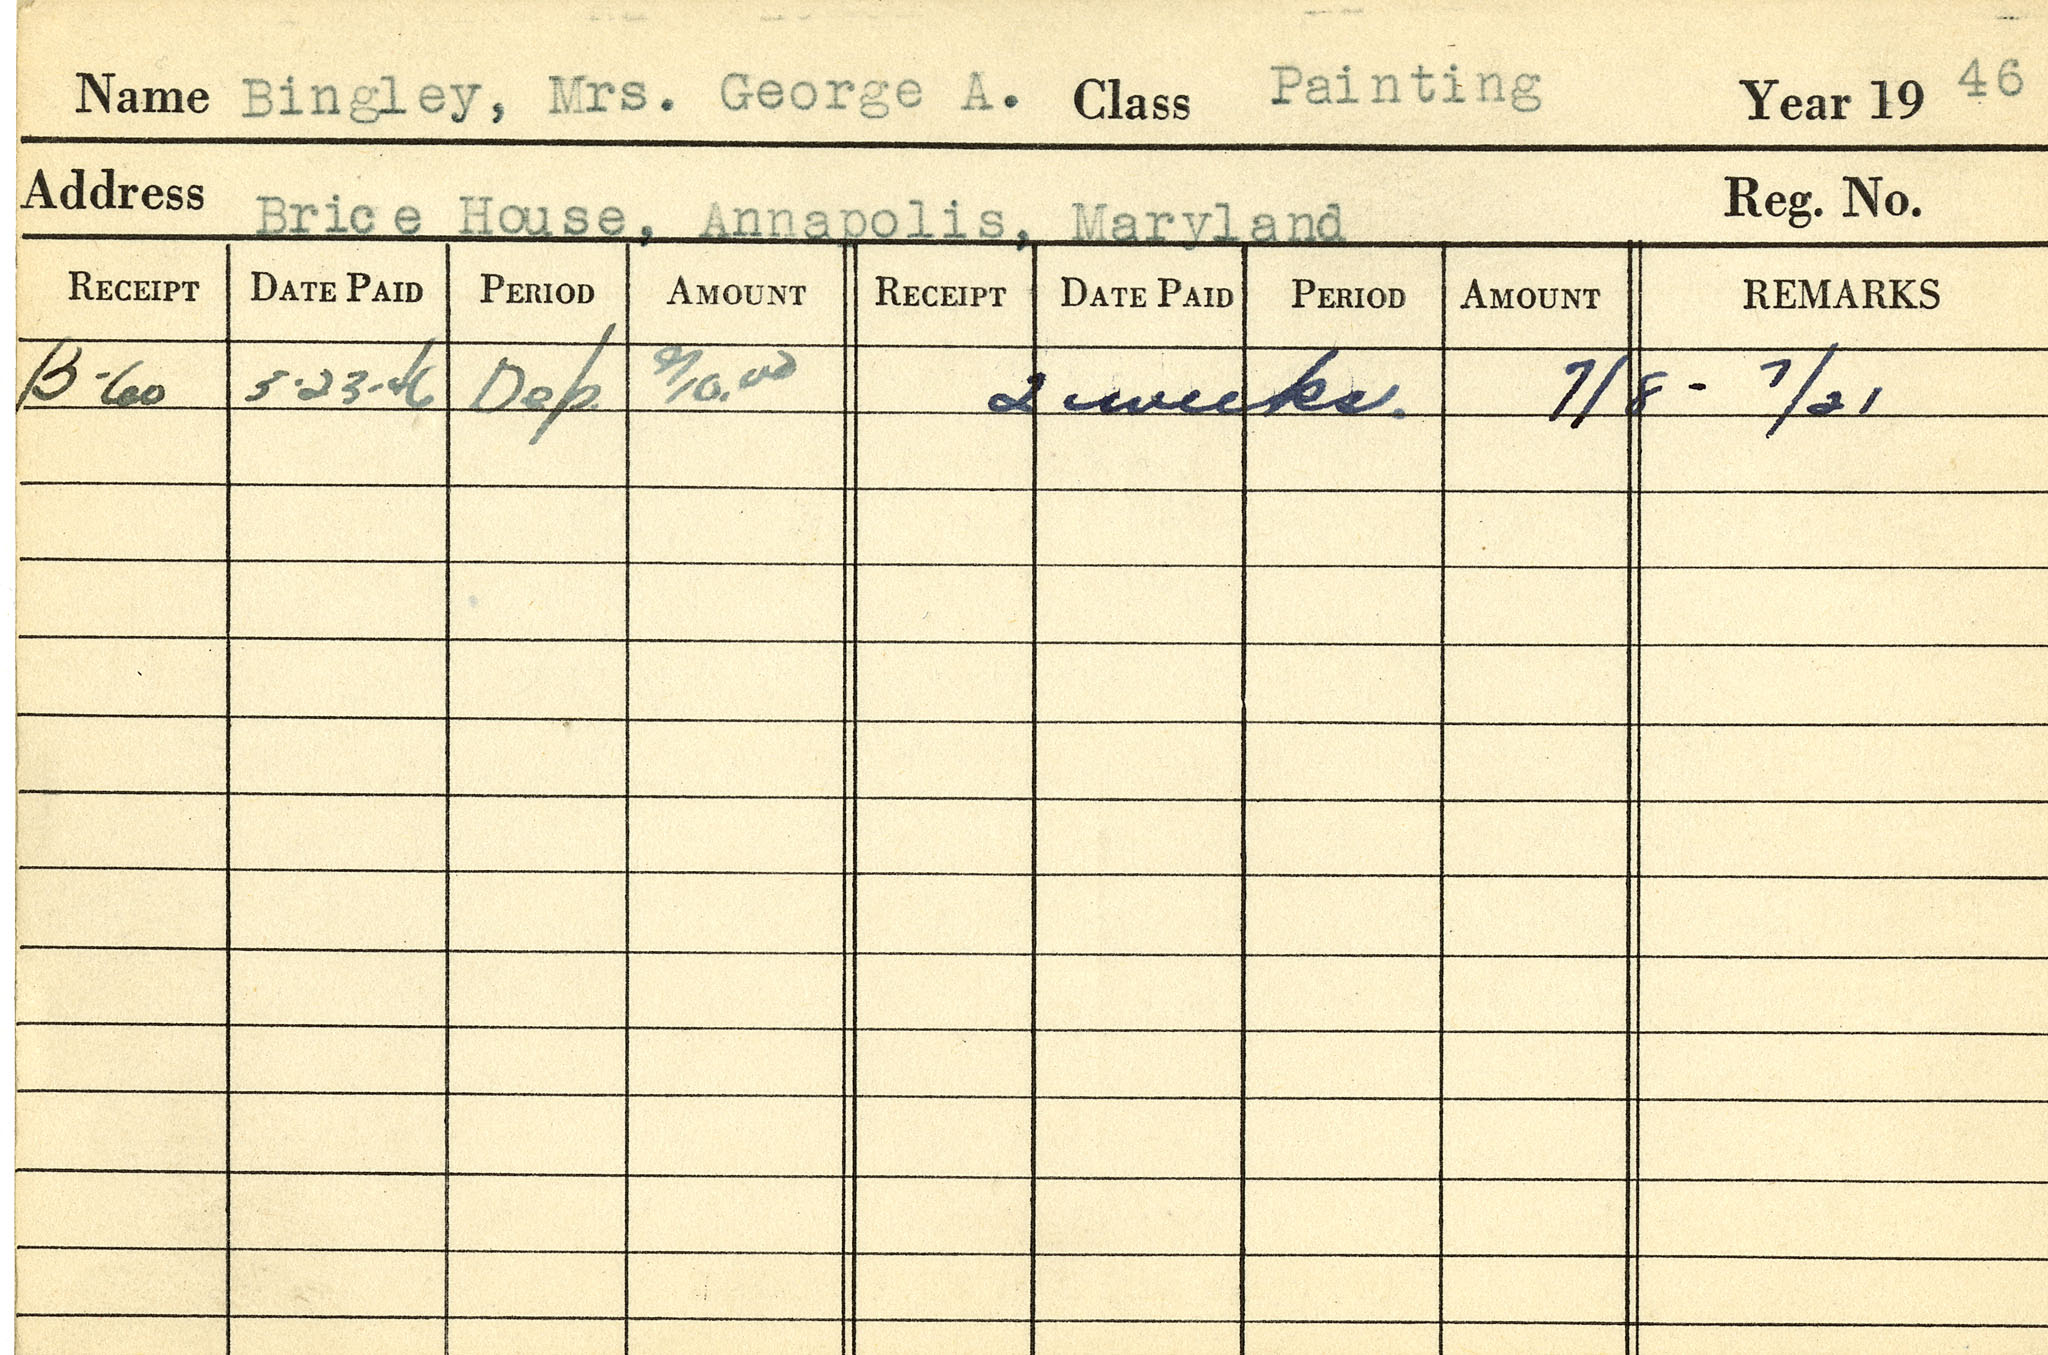 Name Bingley, Mrs. George A. Class Painting Year 19 46
Address Brice House, Annapolis, Maryland Reg. No.
RECEIPT DATE PAID PERIOD AMOUNT RECEIPT DATE PAID PERIOD AMOUNT REMARKS
B-60 5-23-46 Dep. 10.00 2 weeks. 7/8 - 7/21